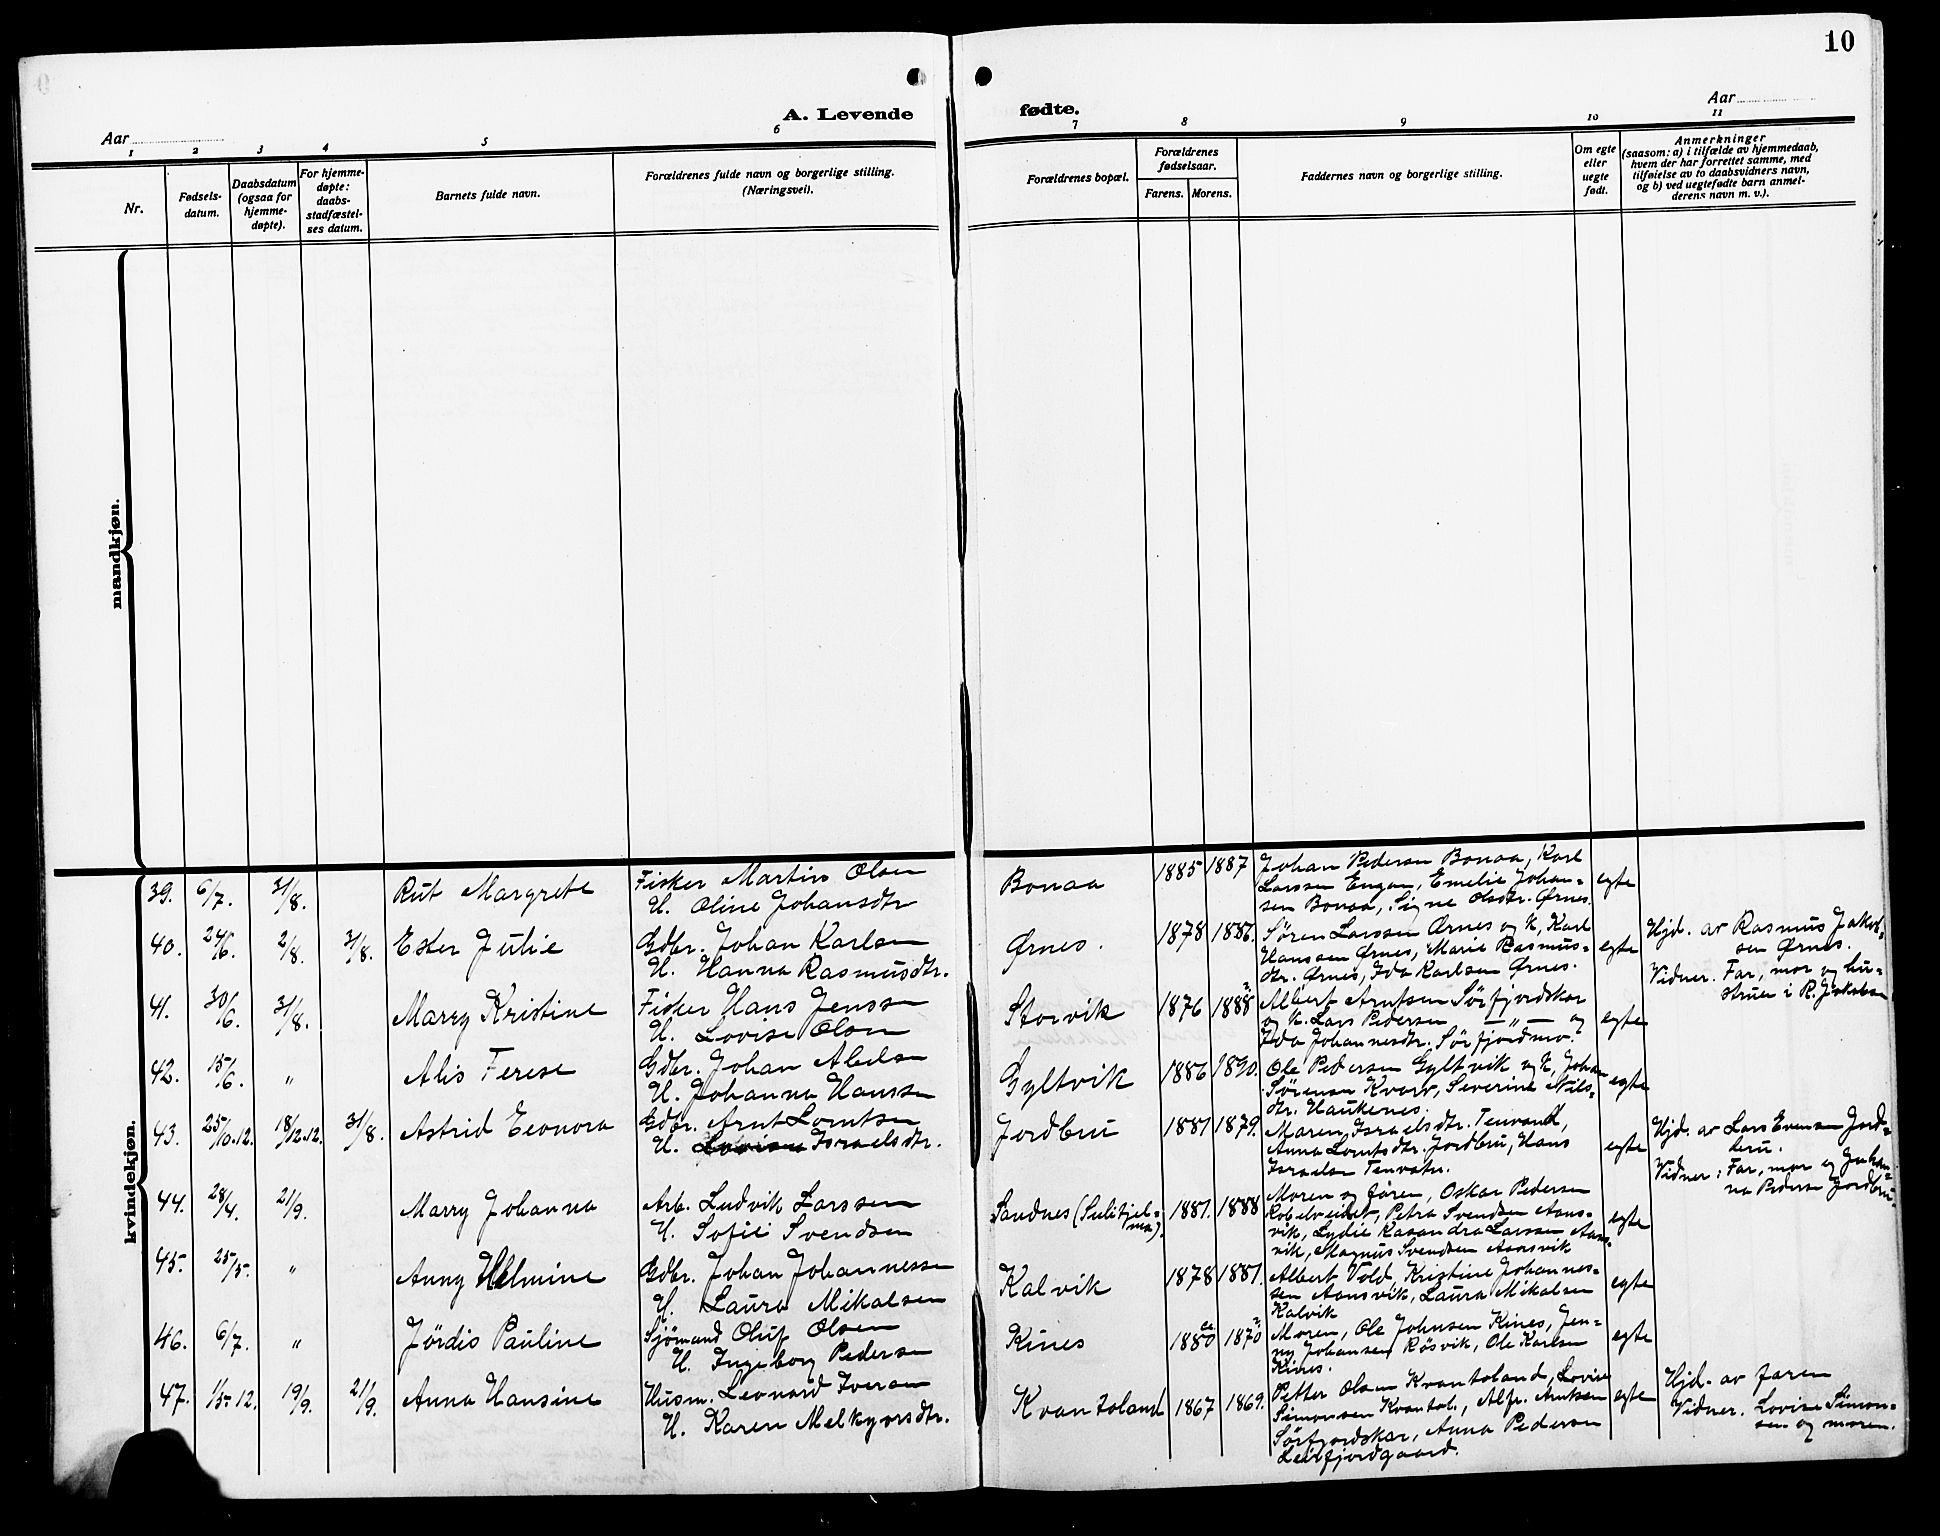 10
A. Levende fødte.
Aar
Aar
1 2 3 4 5 6 7 8 9 10 11
Nr.
Fødsels-
datum.
Daabsdatum
(ogsaa for
hjemme-
døpte).
For hjemme-
døpte:
daabs-
stadfæstel-
ses datum.
Barnets fulde navn.
Forældrenes fulde navn og borgerlige stilling.
(Næringsvei).
Forældrenes bopæl.
Forældrenes
fødselsaar.
Farens. Morens.
Faddernes navn og borgerlige stilling.
Om egte
eller
uegte
født.
Anmerkninger
(saasom: a) i tilfælde av hjemmedaab,
hvem der har forrettet samme, med
tilføielse av to daabsvidners navn,
og b) ved uegtefødte barn anmel-
derens navn m. v.).
mandkjøn.
kvindekjøn.
39. 6/7. 31/8. Rut Margrete
Fisker Martin Olsen
H. Oline Johansdtr
Bonaa 1885 1887
Johan Pedersen Bonaa, Karl
Larssen Engan, Emelie Johan=
sen Bonaa, Signe Olsdtr. Ørnes.
egte
40. 24/6. 2/8. 31/8. Ester Julie
Gdbr. Johan Karlsen
H. Hanna Rasmusdtr.
Ørnes. 1878 1886.
Søren Larssen Ørnes og K, Karl
Hanssen Ørnes, Marie Rasmus=
dtr. Ørnes, Ida Karlsen Ørnes.
egte
Hjd. av Rasmus Jakob=
sen Ørnes.
Vidner. Far, mor og hu=
struen i R. Jakobsen
41. 30/6. 31/8. Marry Kristine
Fisker Hans Jenssen
H. Lovise Olsen
Storvik 1876 1888
Albert Arntsen Sörfjordskar
og K. Lars Pedersen — " — og
Ida Johannesdtr. Sörfjordmo.
egte
42. 15/6. " Alis Terese
Gdbr. Johan Abelsen
H. Johanna Hanssen
Gyltvik 1886 1890.
Ole Pedersen Gyltvik og K, Johan
Sørensen Kvarv, Severine Nils=
dtr. Haukenes.
egte
43. 25/10.12. 18/12.12. 31/8. Astrid Eeonora
Gdbr. Arnt Lorntsen
H. Israelsdtr.
Jordbru 1881 1879.
Maren Israelsdtr. Tenvand,
Anna Lorntsdtr. Jordbru, Hans
Israelsen Tenvatn.
egte
Hjd. av Lars Evensen Jord=
bru.
Vidner: Far, mor og Johan=
na Pedersen Jordbru.
44. 28/4. 21/9. Marry Johanna
Arb. Ludvik Larssen
H. Sofie Svendsen
Sandnes (Sulitjel=
ma). 1881. 1888
Moren og faren, Oskar Pedersen
Kobelveidet, Petra Svendsen Aans=
vik, Lydie Kasandra Larssen Aans=
vik, Magnus Svendsen Aansvik
egte
45. 25/5. " Anny Helmine
Gdbr. Johan Johannessen
H. Laura Mikalsen
Kalvik 1878 1881.
Albert Vold, Kristine Johannes=
sen Aansvik, Laura Mikalsen
Kalvik
egte
46. 6/7. " Jördis Pauline
Sjömand Oluf Olsen
H. Ingeborg Pedersen
Kines 1880 1870
Moren, Ole Johnsen Kines, Jen=
ny Johansen Røsvik, Ole Karlsen
Kines.
egte
47. 1/5.12. 19/9. 21/9. Anna Hansine
Husm. Leonard Iversen
H. Karen Melkyorsdtr.
Kvantoland 1867 1869.
Petter Olsen Kvantoland, Lovise
Simonsen Kvantol., Alfr. Arntsen
Sörfjordskar, Anna Pedersen
Leirfjordgaard.
egte
Hjd. av faren
Vidner. Lovise Simon=
sen og moren.